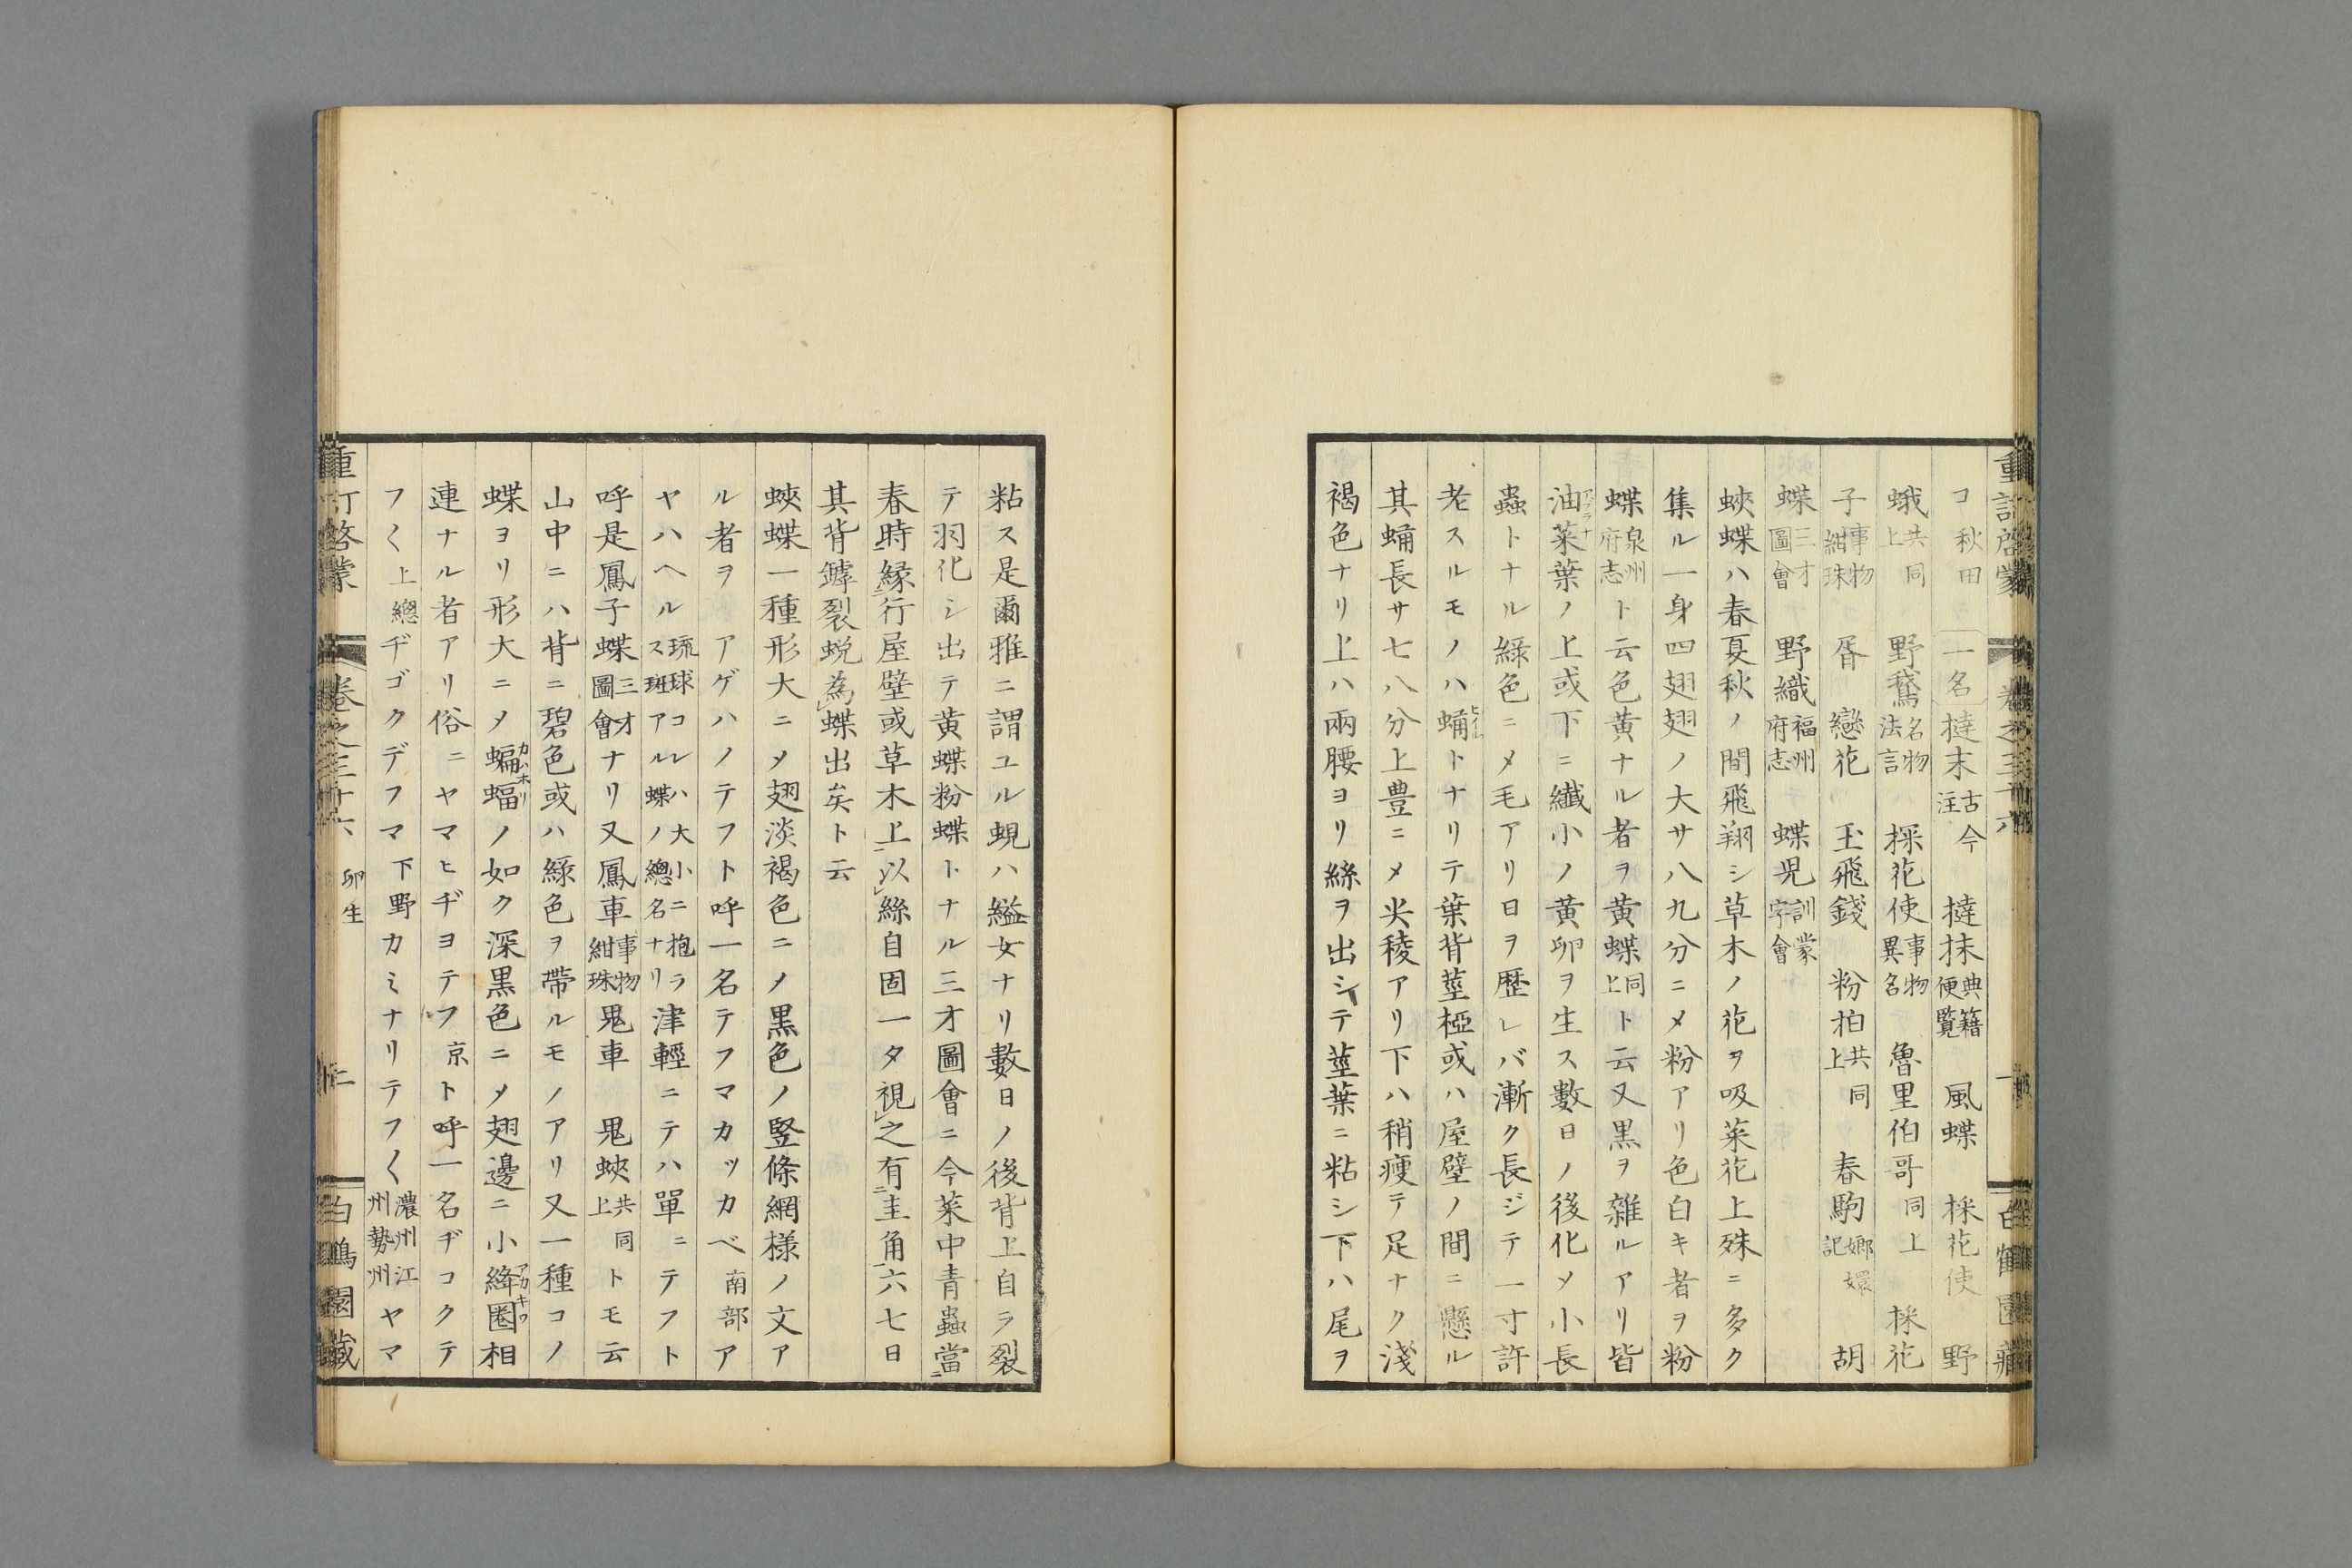 重訂啓蒙 卷之三十六 白鶴園藏
コ秋田 一名撻末古今注 撻抹典籍便覧 風蝶 採花使 野
蛾共同上 野鶩名物法言 採花使事物異名 魯里伯哥同上 採花
子事物紺珠 胥 戀花 玉飛錢 粉拍共同上 春駒嫏嬛記 胡
蝶三才圖會 野織福州府志 蝶児訓蒙字會
蛺蝶ハ春夏秋ノ間飛翔シ草木ノ花ヲ吸菜花上殊ニ多ク
集ル一身四翅翅ノ大サ八九分ニメ粉アリ色白キ者ヲ粉
蝶泉州府志ト云色黄ナル者ヲ黄蝶同上ト云又黒ヲ雜ルアリ皆
油菜葉ノ上或下ニ纎小ノ黄卵ヲ生ス數日ノ後化メ小長
蟲トナル緑色ニメ毛アリ日ヲ歴レバ漸ク長ジテ一寸許
老スルモノハ蛹トナリテ葉背莖椏或ハ屋壁ノ間ニ懸ル
其蛹長サ七八分上豊ニメ尖稜アリ下ハ稍痩テ足ナク淺
褐色ナリ上ハ兩腰ヨリ絲ヲ出シテ莖葉ニ粘シ下ハ尾ヲ
粘ス是爾雅ニ謂ユル蜆ハ縊女ナリ數日ノ後背上自ラ裂
テ羽化シ出テ黄蝶粉蝶トナル三才圖會ニ今菜中青蟲當ニ
春時縁行屋壁或草木上以絲自固一夕視之有圭角六七日
其背罅裂蛻為蝶出矣ト云
蛺蝶一種形大ニメ翅淡褐色ニメ黒色ノ竪條網様ノ文ア
ル者ヲ アゲハノテフト呼一名テフマ カッカベ南部 ア
ヤハヘル琉球コレハ大小ニ抱ラス斑アル蝶ノ總名ナリ 津輕ニテハ單ニテフト
呼是鳳子蝶三才圖會ナリ又鳳車事物紺珠 鬼車 鬼蛺共同上トモ云
山中ニハ背ニ碧色或ハ緑色ヲ帶ルモノアリ又一種コノ
蝶ヨリ形大ニメ蝙蝠カハホリノ如ク深黒色ニメ翅邊ニ小絳圏アカキワ相
連ナル者アリ俗ニヤマヒヂヨテフ京ト呼一名ヂコクテ
フ〱上總 ヂゴクデフマ下野 カミナリテフ〱濃州江州勢州 ヤマ
重訂啓蒙 卷之三十六 卵生 十二 白鶴園藏